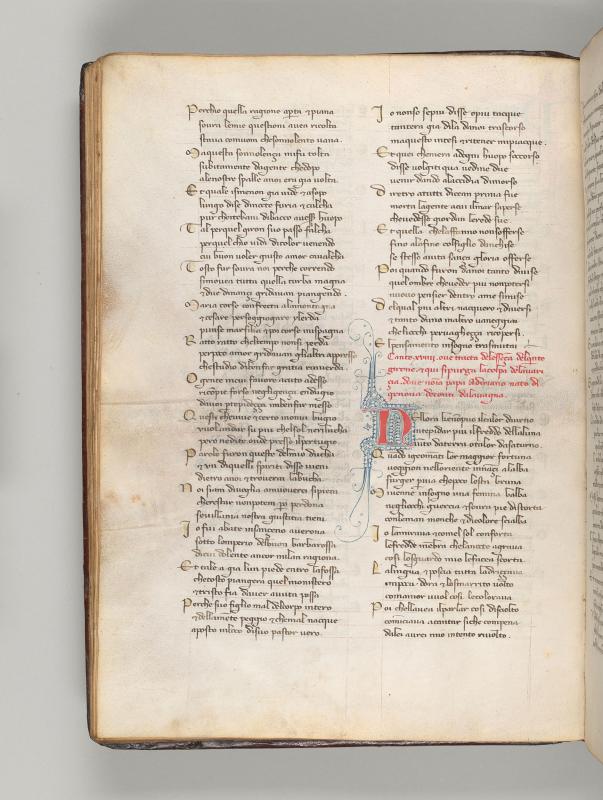 Perchio quella ragione aperta & piana
soura leme questioni auea ricolta
staua comuom che sonnolento uana
Ma questa sonnolenza mifu tolta
subitamente da gente che dopo
le nostre spalle anoi era gia uolta
Et quale ismenon gia uide & asopo
lungo dise dinocte furia & calcha
pur cheitebani dibacco auess huopo
Tal per quel giron suo passo falcha
perquel chio uidi dicolor uenendo
cui buon uoler giusto amor caualcha
Tosto fur soura noi perche correndo
simouea tutta quella turba magna
& due dinanzi gridauan piangendo
Maria corse confrecta alamontagna
& cesare persoggiogare ylerda
punse marsilia & poi corse inispagna
Ratto ratto cheltempo nonsi perda
perpoco amor gridauan glialtri appresso
che studio dibenfar gratia rinuerda
O gente incui feruore acuto adesso
ricopie forse negligenza endugio
dauoi pertepidezza imbenfar messo
Questi cheuiue & certo inonui bugio
uuolandar su piu chelsol neriluccha
pero nedite onde presso ilpertugio
Parole furon queste delmio ducha
& un diquelli spiriti disse uieni
dietro anoi & trouerai labucha
Noi siam diuoglia amuouerci sipieni
cherestar nonpotem pero perdona
seuillania nostra giustitia tieni
Io fui abate insanzeno auerona
sotto lomperio delbuon barbarossa
dicui dolente ancor milan ragiona
Et tale a gia lun piede entro lafossa
chetosto piangera quel monistero
& tristo fia dauer auuta possa
Perche suo figlio mal delcorpo intero
& dellamente peggio & chemal nacque
aposto inloco disuo pastor uero
Io nonso sepiu disse opiu tacque
tantera gia dila danoi trascorso
maquesto intesi & ritener mipiacque
Et quei chemera adogni huopo soccorso
disse uolgiti qua uedine due
uenir dando alaccidia dimorso
Diretro atutti dicean prima fue
morta lagente acui ilmar saperse
cheuedesse giordan lerede sue
Et quella chelaffanno nonsofferse
fino alafine colfiglio danchise
se stesso auita sanza gloria offerse
Poi quando furon danoi tanto diuise
quelombre cheueder piu nonpotersi
nuouo pensier dentro ame simise
Delqual piu altri nacquero & diuersi
& tanto duno inaltro uaneggiai
che liocchi peruaghezza ricopersi
El pensamento insogno trasmutai
Canto xviiij. oue tracta delessenza delquinto
girone. & qui sipurga lacolpa dellauar
itia. doue noia papa Adriano nato di
genoua deconti dilauagna.
Nellora chenonpuo ilcalor diurno
intepidar piu ilfreddo dellaluna
uinto daterra ottalor dasaturno
Quado igeomati lor maggior fortuna
ueggion nelloriente innanzi alalba
surger per uia chepoco lesta bruna
Miuenne insogno una femina balba
negliocchi guercia & soura pie distorta
conleman monche & dicolore scialba
Io lamiraua & comel sol conforta
lefredde membra chelanocte agraua
cosi losguardo mio lefacea scorta
La lingua & poscia tutta ladrizzaua
impoco dora & losmarrito uolto
comamor uuol cosi lecoloraua
Poi chellauea ilparlar cosi disciolto
cominciaua acantar siche compena
dalei aurei mio intento riuolto.